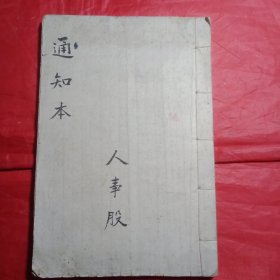 通知本
人事股